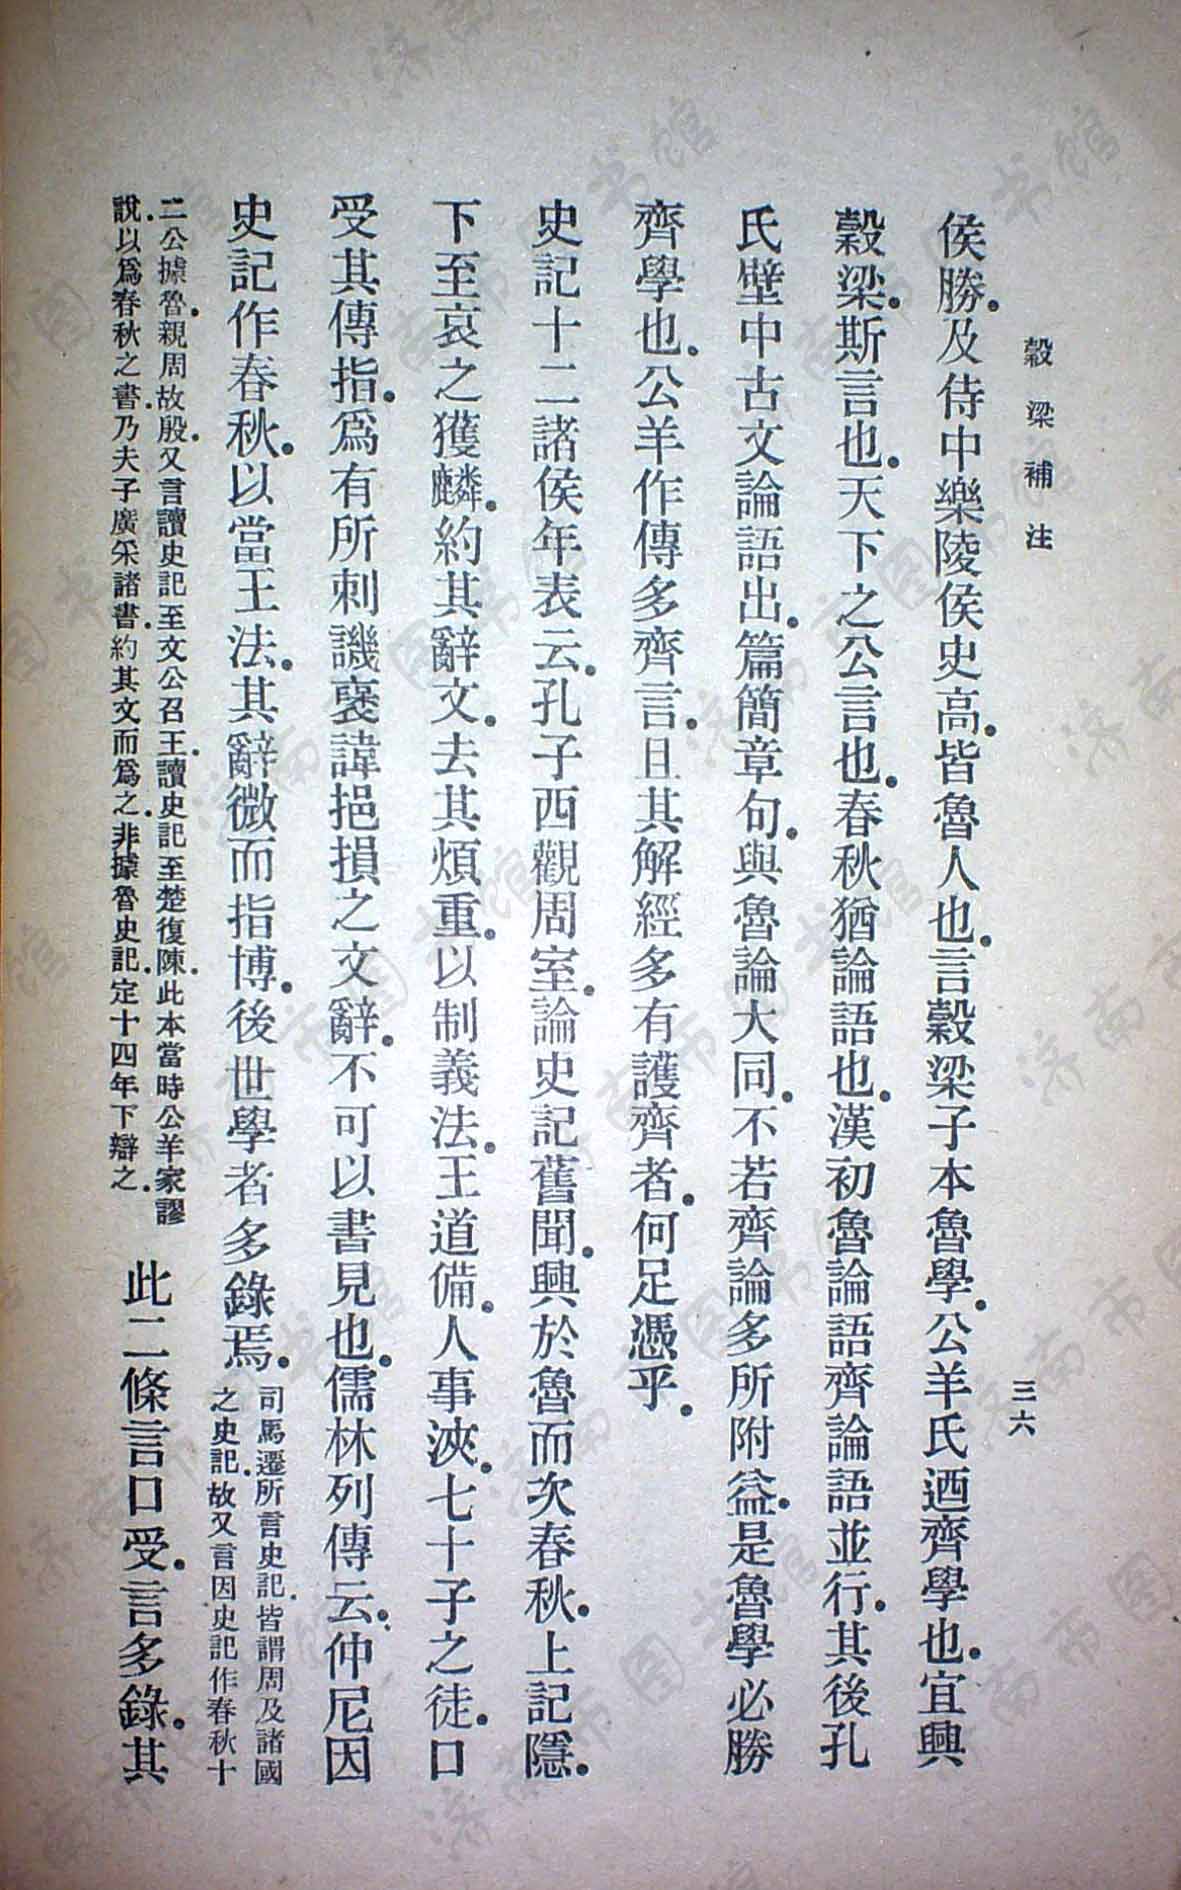 穀梁補注
三六
侯勝。及侍中樂陵侯史高。皆魯人也。言穀梁子本魯學。公羊氏迺齊學也。宜興
穀梁。斯言也。天下之公言也。春秋猶論語也。漢初魯論語齊論語並行。其後孔
氏壁中古文論語出。篇簡章句。與魯論大同。不若齊論多所附益。是魯學必勝
齊學也。公羊作傳多齊言。且其解經多有護齊者。何足憑乎。
史記十二諸侯年表云。孔子西觀周室。論史記舊聞。興於魯而次春秋。上記隱。
下至哀之獲麟。約其辭文。去其煩重。以制義法。王道備。人事浹。七十子之徒。口
受其傳指。爲有所刺譏襃諱挹損之文辭。不可以書見也。儒林列傳云。仲尼因
史記作春秋。以當王法。其辭微而指博。後世學者多錄焉。
司馬遷所言史記。皆謂周及諸國
之史記。故又言因史記作春秋十
二公據魯。親周故殷。又言讀史記至文公召王。讀史記至楚復陳。此本當時公羊家謬
說。以爲春秋之書。乃夫子廣采諸書。約其文而爲之。非據魯史記。定十四年下辯之。
此二條言口受。言多錄。其
济南市图书馆